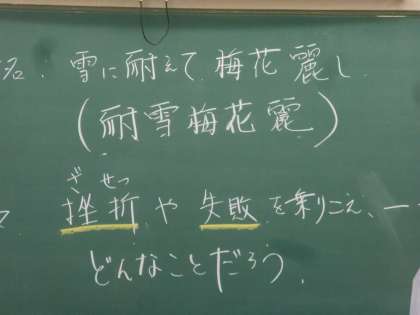 名. 雪に耐えて梅花麗し
(耐雪梅花麗)
ざせつ
挫折や失敗を乗りこえ、一
どんなことだろう.